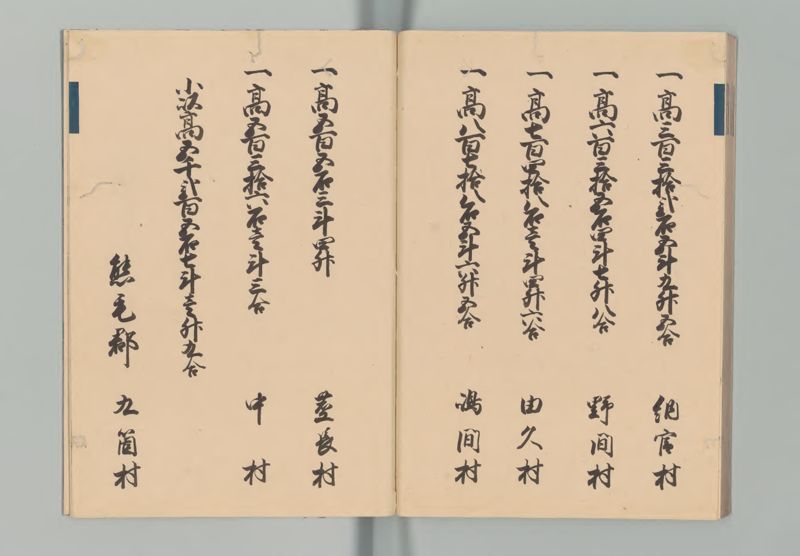 一高三百三拾弐石五斗九升五合 納官村
一高六百三拾五石四斗七升八合 野間村
一高七百四拾八石壱斗四升六合 由久村
一高八百七拾八石五斗六升五合 嶋間村
一高五百五石三斗四升 莖長村
一高五百三拾六石壱斗三合 中村
小以高五千弐百五石七斗壱升九合
熊毛郡 九箇村